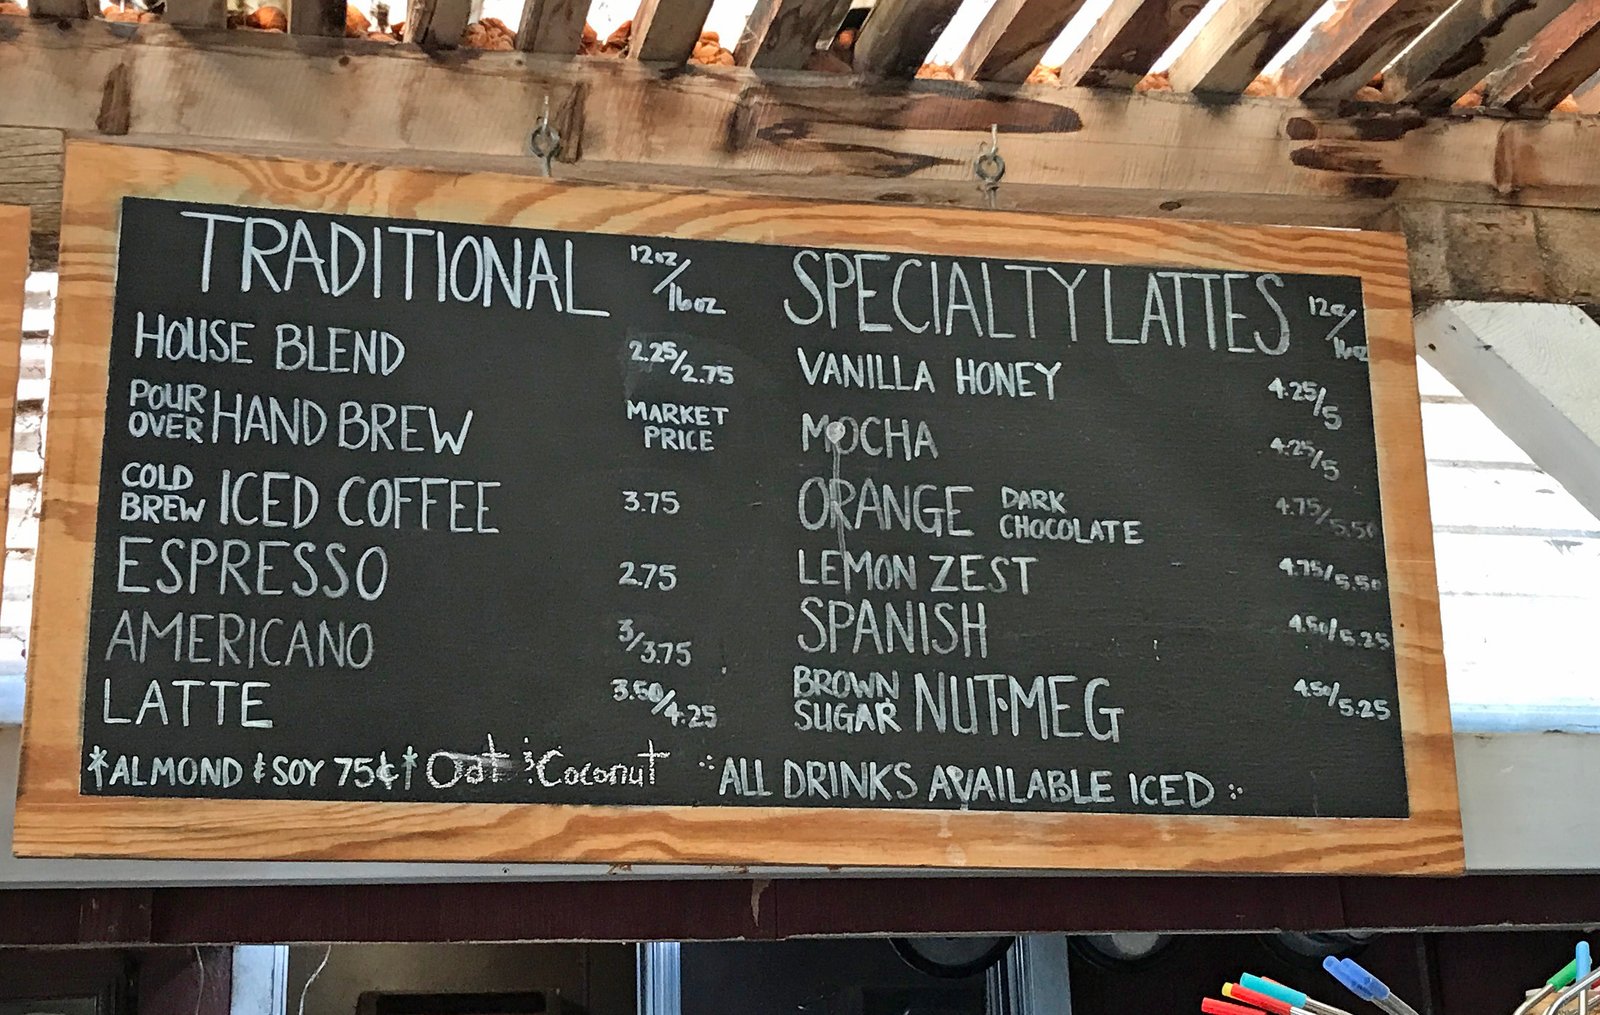 TRADITIONAL 12oz/16oz
HOUSE BLEND 2.25/2.75
POUR OVER HAND BREW MARKET PRICE
COLD BREW ICED COFFEE 3.75
ESPRESSO 2.75
AMERICANO 3/3.75
LATTE 3.50/4.25
*ALMOND & SOY 75¢* Oat & Coconut
SPECIALTY LATTES 12oz/16oz
VANILLA HONEY 4.25/5
MOCHA 4.25/5
ORANGE DARK CHOCOLATE 4.75/5.50
LEMON ZEST 4.75/5.50
SPANISH 4.50/5.25
BROWN SUGAR NUT·MEG 4.50/5.25
ALL DRINKS AVAILABLE ICED